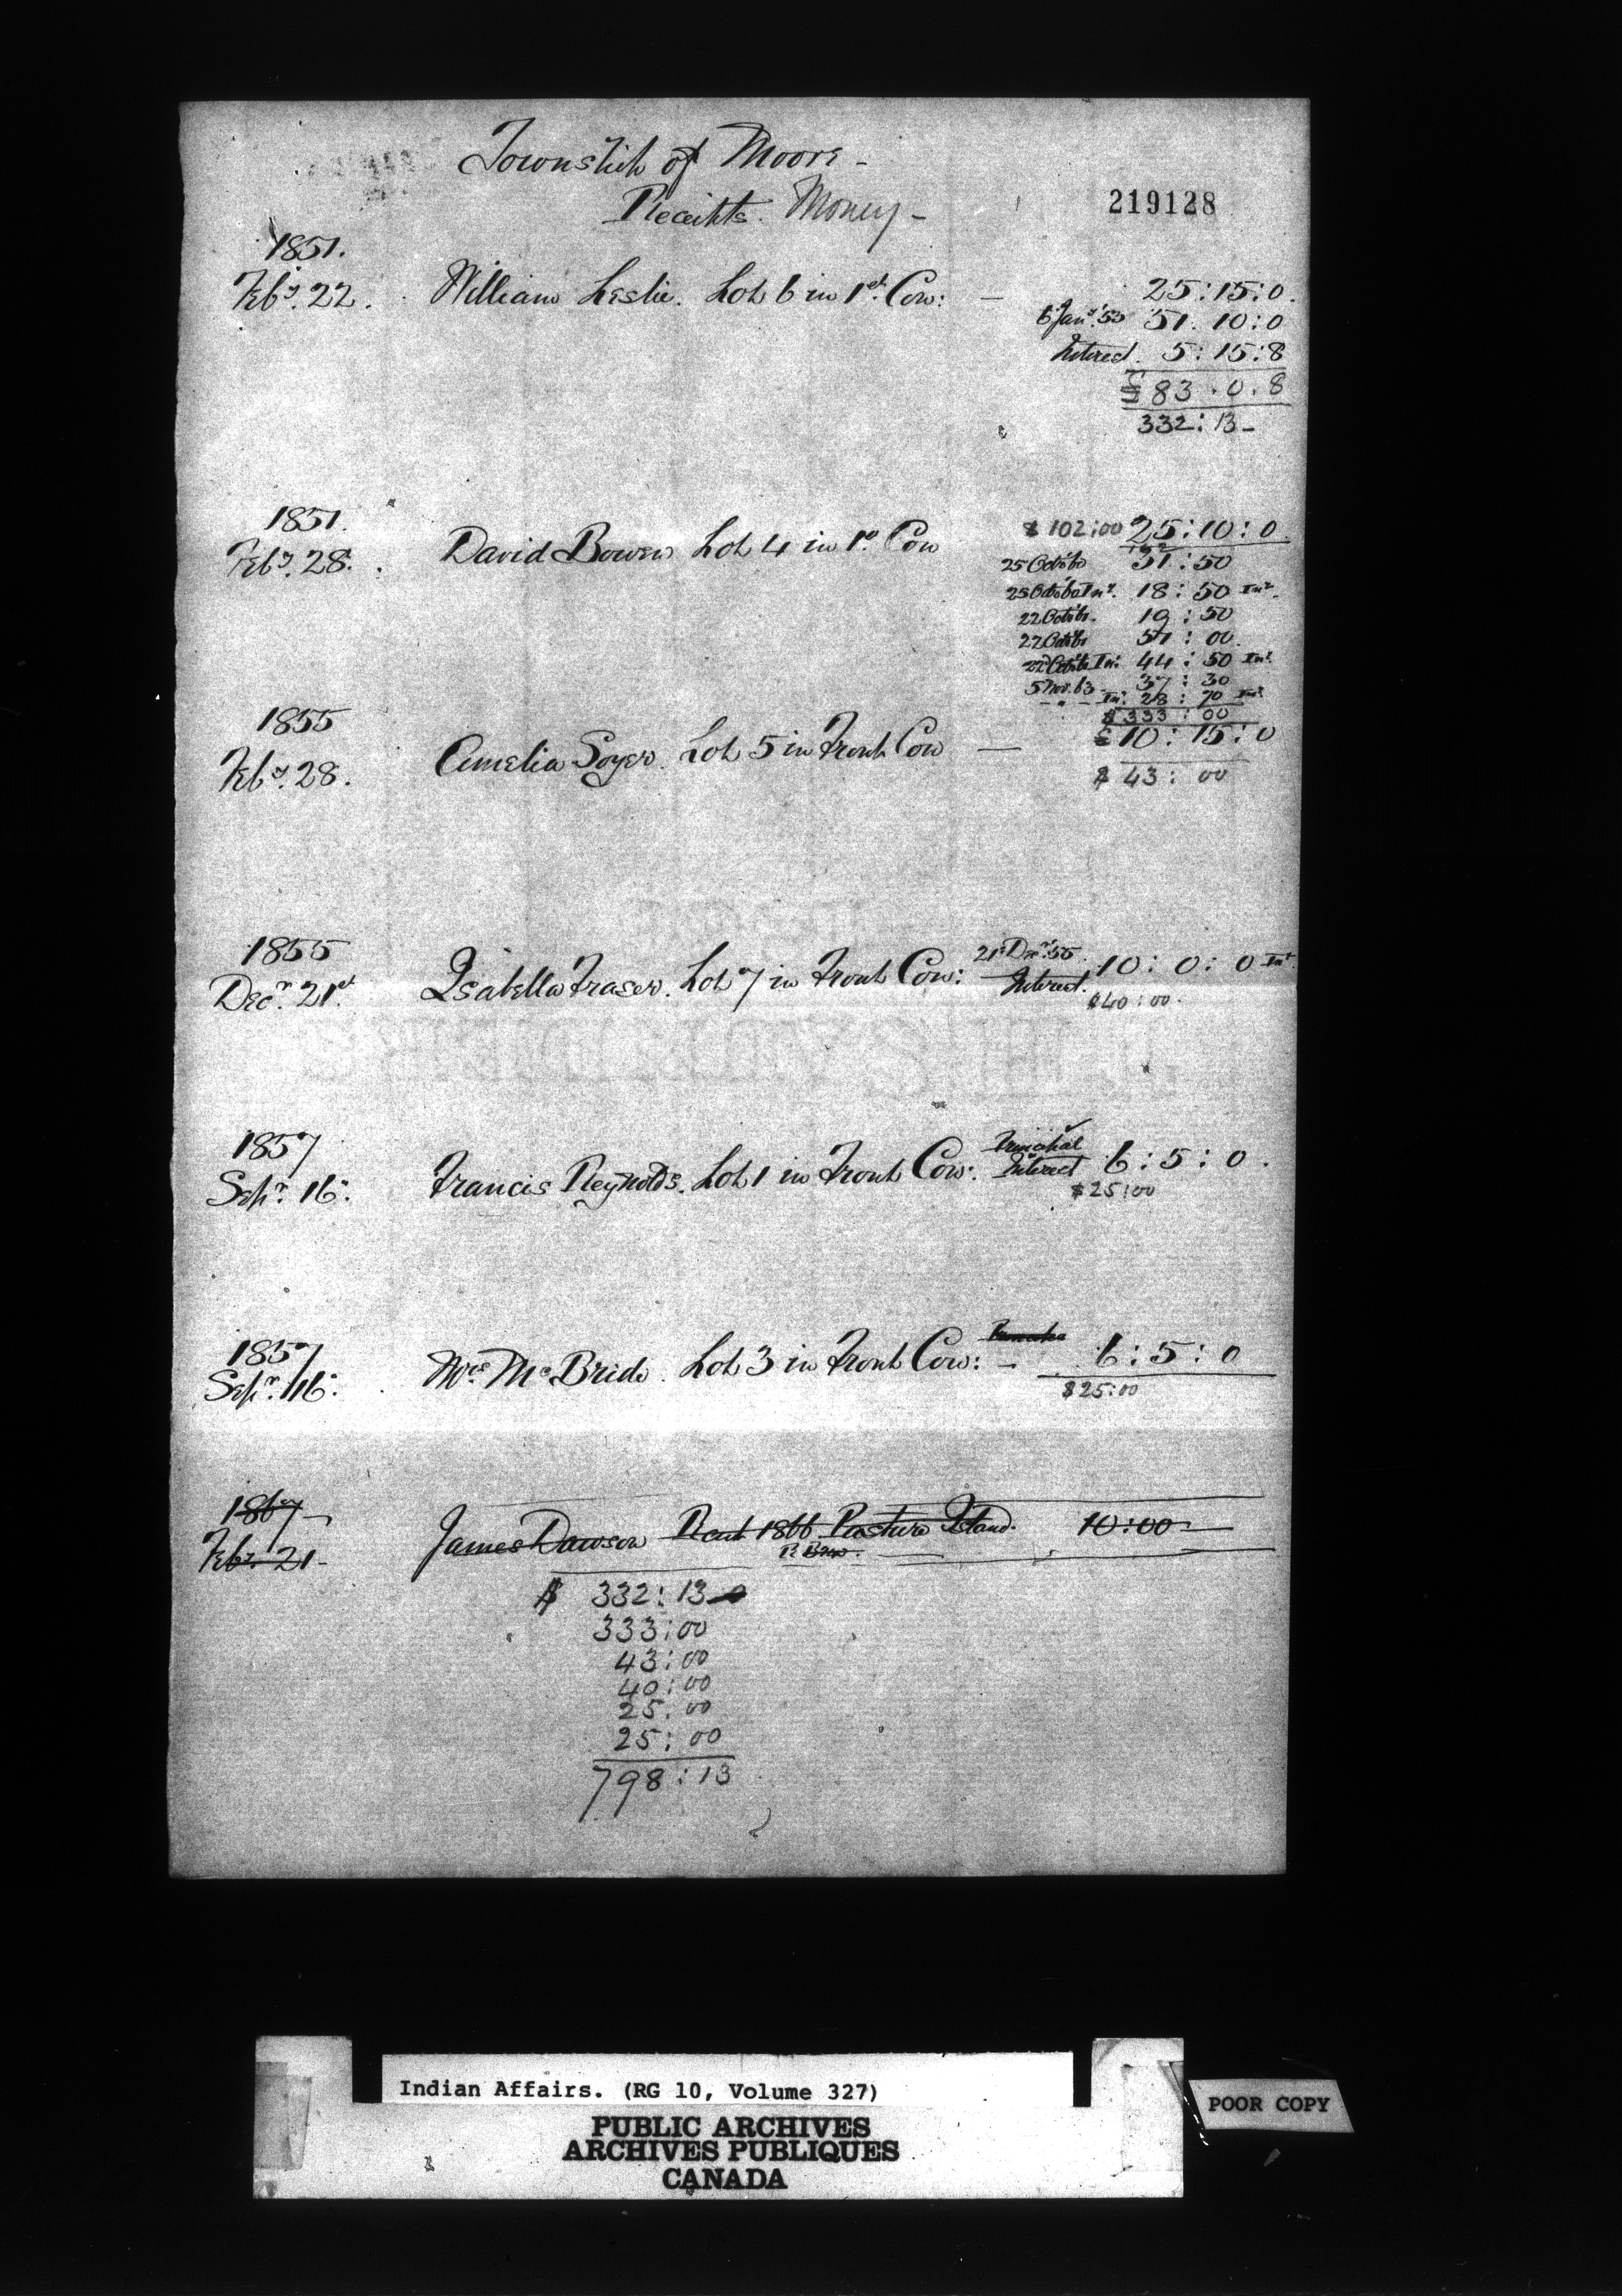 Township of Moore -
Receipts. Money -
219128
1851.
Feby. 22. William Leslie. Lot 6 in 1st. Con: — 25:15:0.
6 Jany. 53 51. 10:0
Interest. 5:15:8
£ 83.0.8
332:13-
1851.
Feby. 28. David Bowen Lot 4 in 1st. Con $ 102:00 25:10:0
25 October 31:50
25 October Int. 18:50 Int.
22 October. 19:50
22 October 51:00
22 October Int. 44:50 Int.
5 Nov. 63 - 37:30
- " - Int. 28:70 Int.
$ 333:00
1855
Feby. 28. Amelia Soyer. Lot 5 in Front Con — £ 10:15:0
$ 43:00
1855
Decr. 21st. Isabella Fraser. Lot 7 in Front Con: 21st Decr. 55. 10:0:0 Int.
Interest.
$40:00.
1857
Sepr. 16. Francis Reynolds. Lot 1 in Front Con: Principal
Interest 6:5:0.
$25:00
1857
Sepr. 16. Mrs. McBride. Lot 3 in Front Con: — 6:5:0
$25:00
1867
Feby. 21 - James Dawson Rent 1866 Pasture Island. 10:00
$ 332:13
333:00
43:00
40:00
25:00
25:00
798:13
Indian Affairs. (RG 10, Volume 327)
PUBLIC ARCHIVES
ARCHIVES PUBLIQUES
CANADA
POOR COPY